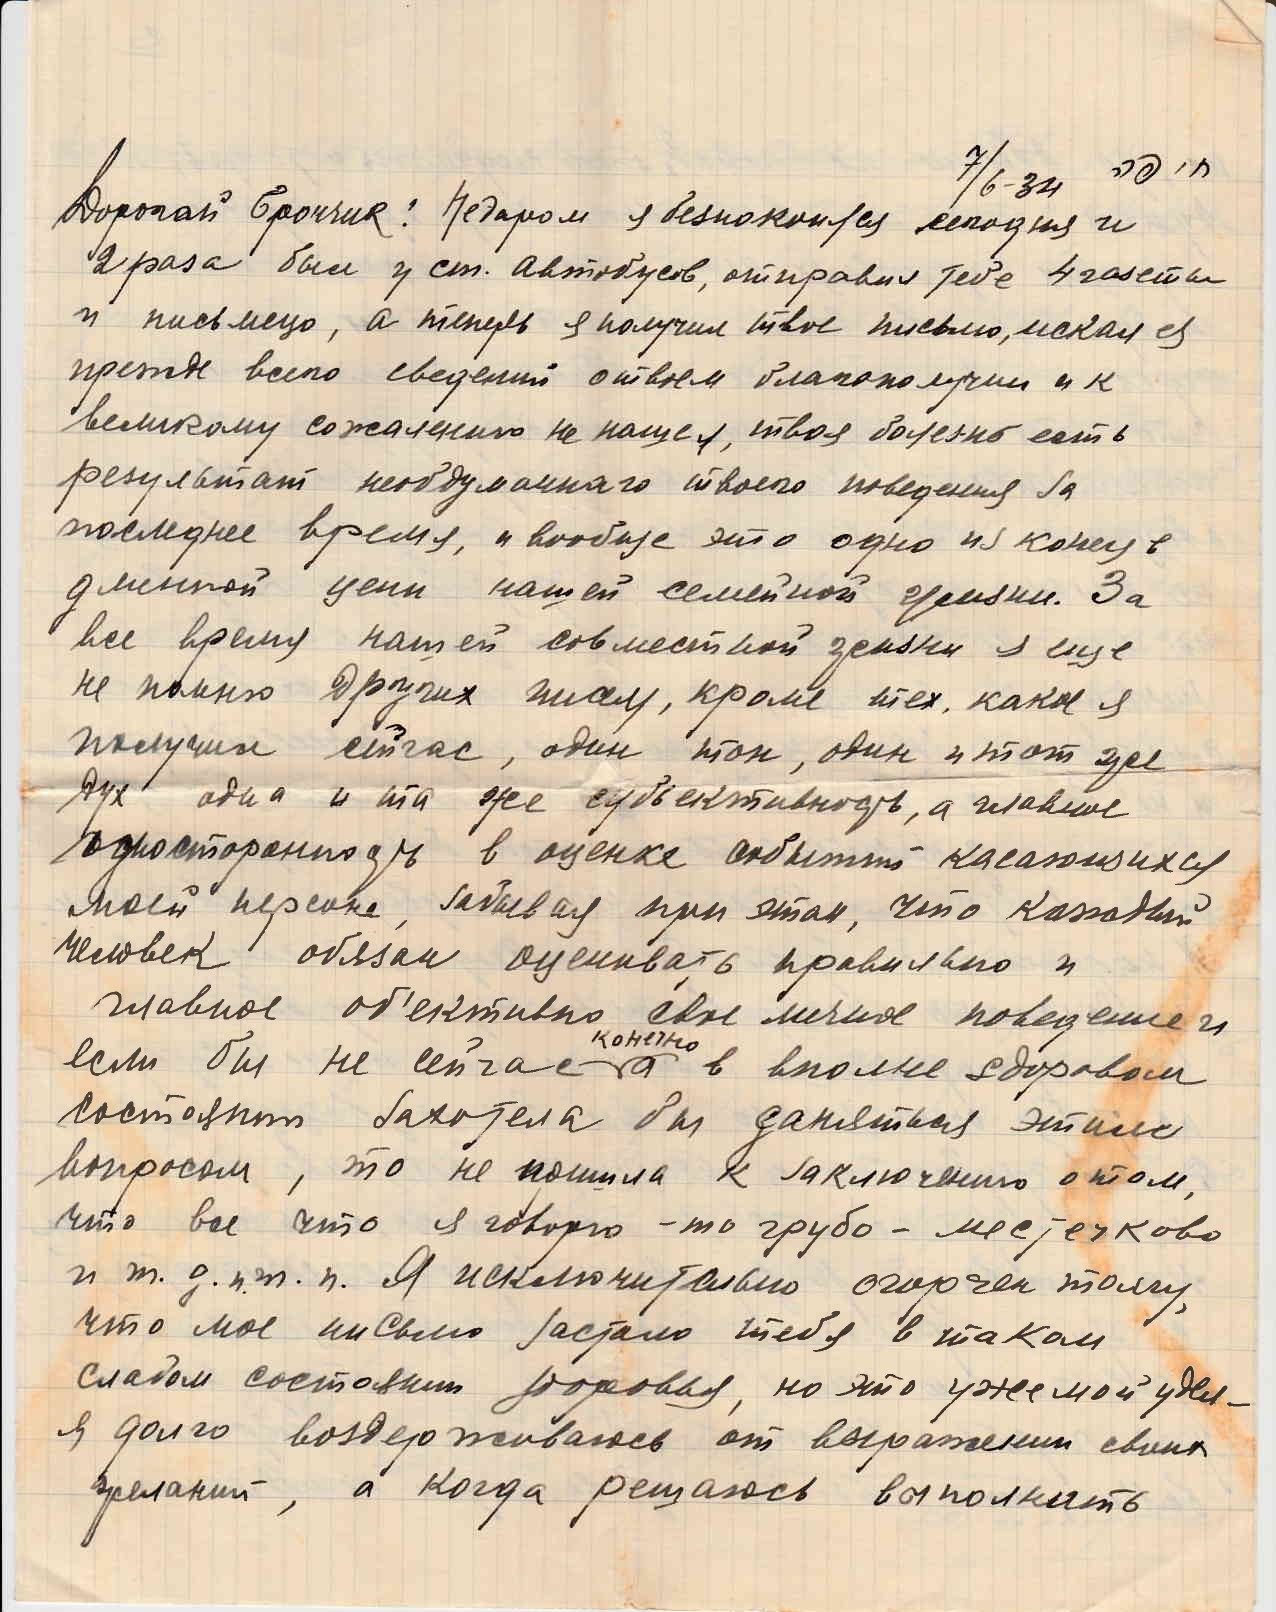 7/6-34 חיפה
Дорогай Брончик! Недаром я безпокоился сегодня и
2 раза был у ст. автобусов, отправил тебе 4 газеты
и письмецо, а теперь я получил твое письмо, искал я
прежде всего сведений о твоем благополучии и к
великому сожалению не нашел, твоя болезнь есть
результат необдуманнаго твоего поведения за
последнее время, и вообще это одно из конец в
длинной цепи нашей семейной жизни. За
все время нашей совместной жизни я еще
не помню других писем, кроме тех, какое я
получил сейчас, один тон, один и тот же
дух одна и та же субъективность, а главное
односторонность в оценке событий касающихся
моей персоне, забывая при этом, что каждый
человек обязан оценивать правильно и
главное об'ективно свое личное поведение и
если бы не сейчас конечно а в вполне здоровом
состоянии захотела бы заняться этим
вопросом, то не пошла к заключению о том,
что все что я говорю - то грубо - местечково
и т. д. и т. п. Я исключительно огорчен тому,
что мое письмо застало тебя в таком
слабом состоянии здоровья, но это уже мой удел -
я долго воздерживаюсь от выражении своих
желаний, а когда решаюсь выполнить